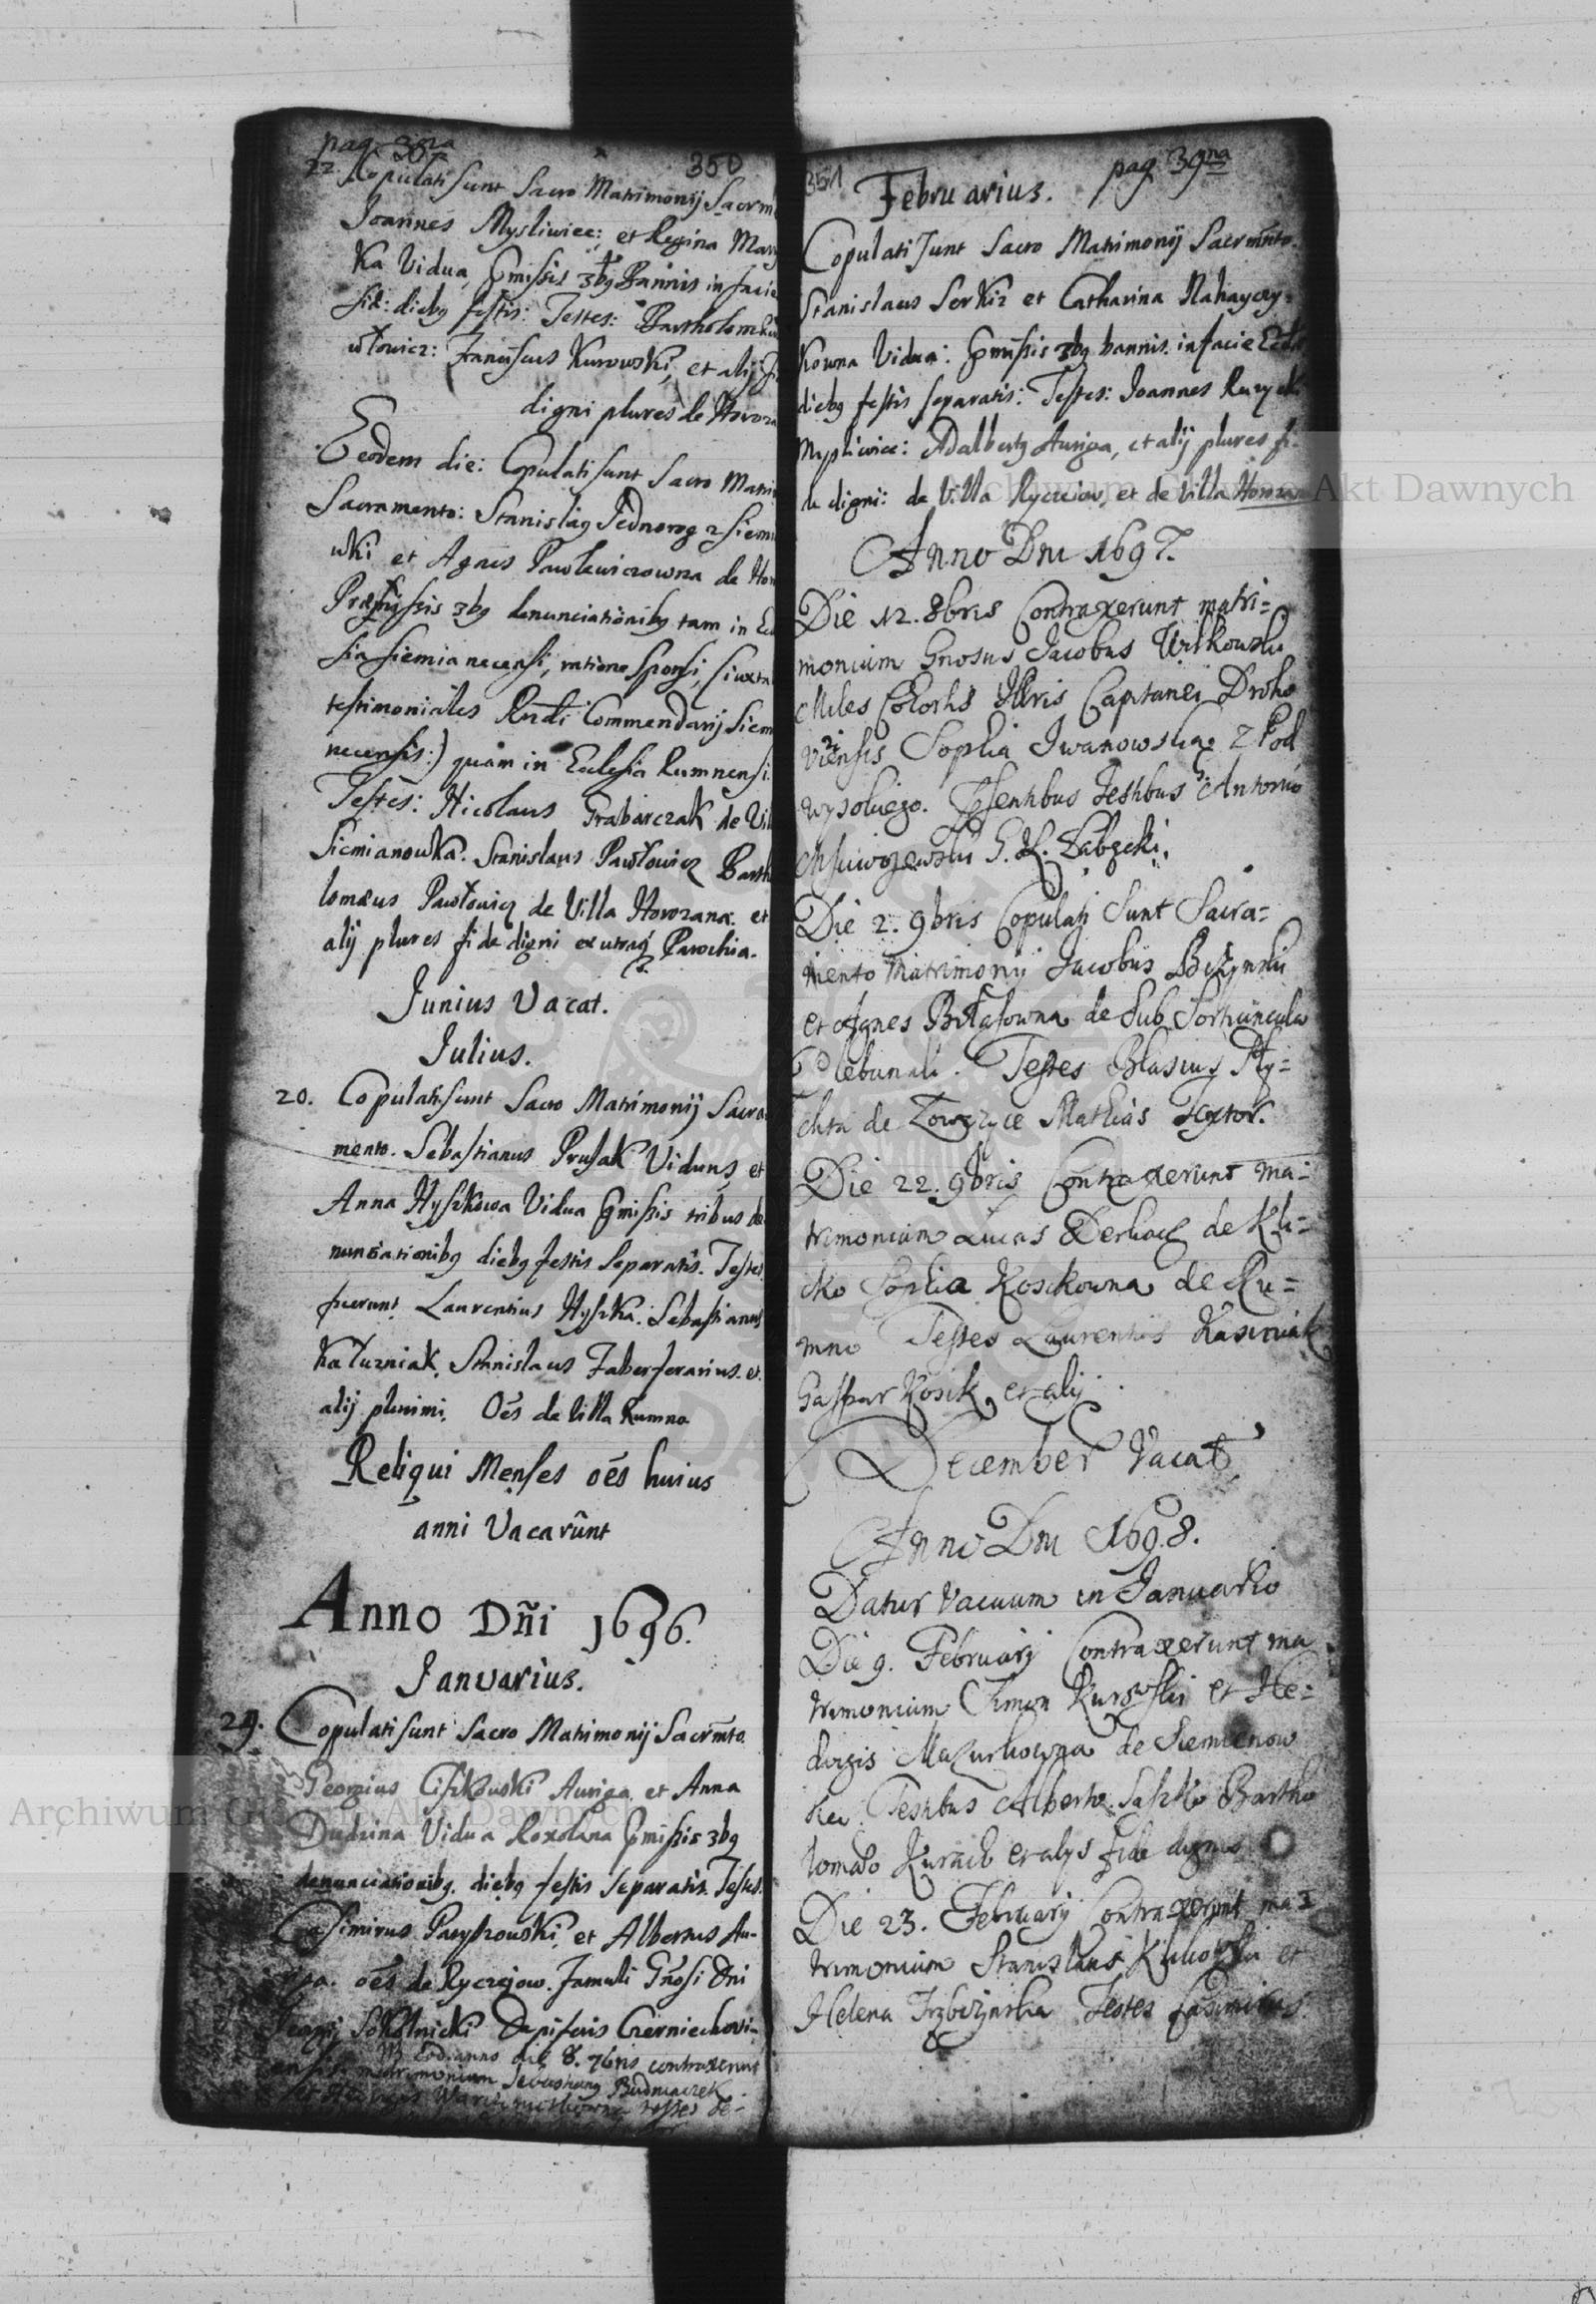 pag. 38va
350
22. Copulati sunt Sacro Matrimonij Sacrm
Joannes Mysliwiec: et Regina Mar
ka Vidua, Pmissis 3bg Bannis in facie
diebg festis: Testes: Bartholom
włowicz: Franciscus Kurowski, et alij
digni plures de Horoza
Eodem die: Copulati sunt Sacro Matri
Sacramento: Stanislag Jednorog z Siem
wki et Agnes Pawlewiczowna de Ho
Præmissis 3bg denunciationibg tam in Ec
sia siemianecensi, ratione Sponsi, (iuxta
testimoniales Rndi Commendarij Siem
necensis:) quam in Ecclesia Rumnensi.
Testes: Nicolaus Grabarczak de Vil
Siemianowka. Stanislaus Pawłowicz Barth
lomæus Pawłowicz de Villa Horozana. et
alij plures fide digni ex utraq Parochia.
Junius Vacat.
Julius.
20. Copulati sunt Sacro Matrimonij Sacra
mento. Sebastianus Prusak Viduus, et
Anna Hyszkowa Vidua Pmissis tribus de
nunciationibg diebg festis Separatis. Testes
fuerunt Laurentius Hyszka: Sebastianus
Kałuzniak, Stanislaus Faber ferarius. et
alij plurimi. Oes de Villa Rumno
Reliqui Menses oes huius
anni Vacarunt
Anno Dñi 1696.
Januarius.
29. Copulati sunt Sacro Matrimonij Sacrmto.
Georgius Ciszkowski Auriga, et Anna
Dudzina Vidua Roxolana Pmissis 3bg
denunciationibg. diebg festis Separatis. Testes.
Casimirus Paryszowski, et Albertus Au-
ga. oes de Ryczejow. Famuli Gnosi Dni
Sokolnicki Dapiferis Czerniechovi-
ensis. Eod: anno die 8. 7bris contraxerunt
matrimonium Sebastiang Budniaczek
testes de-
351
pag 39na
Februarius.
Copulati sunt Sacro Matrimonij Sacrmnto.
Stanislaus Serkiz et Catharina Nahayczy-
kowna Vidua: Pmissis 3bg bannis. in facie Eccl
diebg festis separatis: Testes: Joannes
Mysliwiec: Adalbertg Auriga, et alij plures fi-
de digni: de Villa Ryczeiow, et de Villa Horozan
Anno Dni 1697.
Die 12. 8bris Contraxerunt matri=
monium Gnosus Jacobus Witkowski
Miles Cohortis Illris Capitanei Droho
viensis Sophia Iwanowska z Pod
wysokiego. Psentibus testibus Antonio
G. H. Ząbęcki.
Die 2. 9bris Copulati Sunt Sacra=
mento Matrimonij Jacobus
et Agnes de Sub
Plebanali. Testes Blasius Hy=
de Łowczyce Mathias Textor.
Die 22. 9bris Contraxerunt ma=
trimonium Lucas Derkacz de Kli=
cko Sophia Kosikowna de Ru=
mno Testes Laurentius
Gaspar Kosik, et alij.
December Vacat
Anno Dni 1698.
Datur Vacuum in Januario
Die 9. Februarij Contraxerunt ma
trimonium Simon Kurowski et He=
dvigis Mazurkowna de Siemienow
ka. Testibus Alberto Saszko Bartho
lomæo et alijs fide dignis
Die 23. Februarij Contraxerunt ma=
trimonium Stanislaus et
Helena Testes Casimirus
Archiwum Główne Akt Dawnych
Archiwum Główne Akt Dawnych